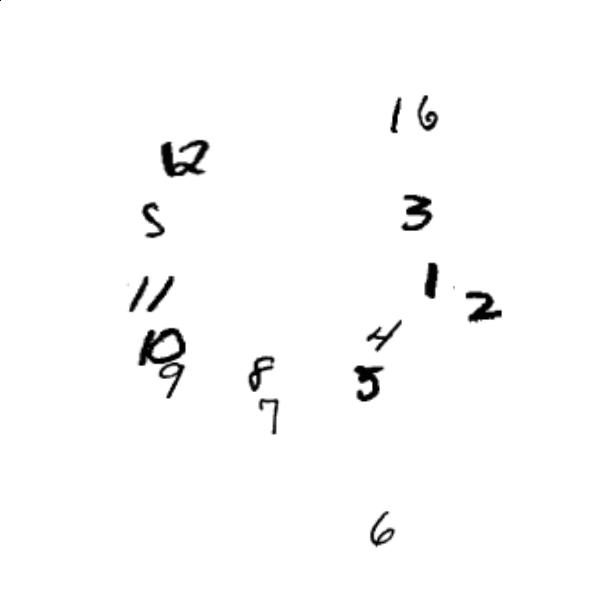 16
12
S 3
11 1 2
10 4
9 8 5
7
6